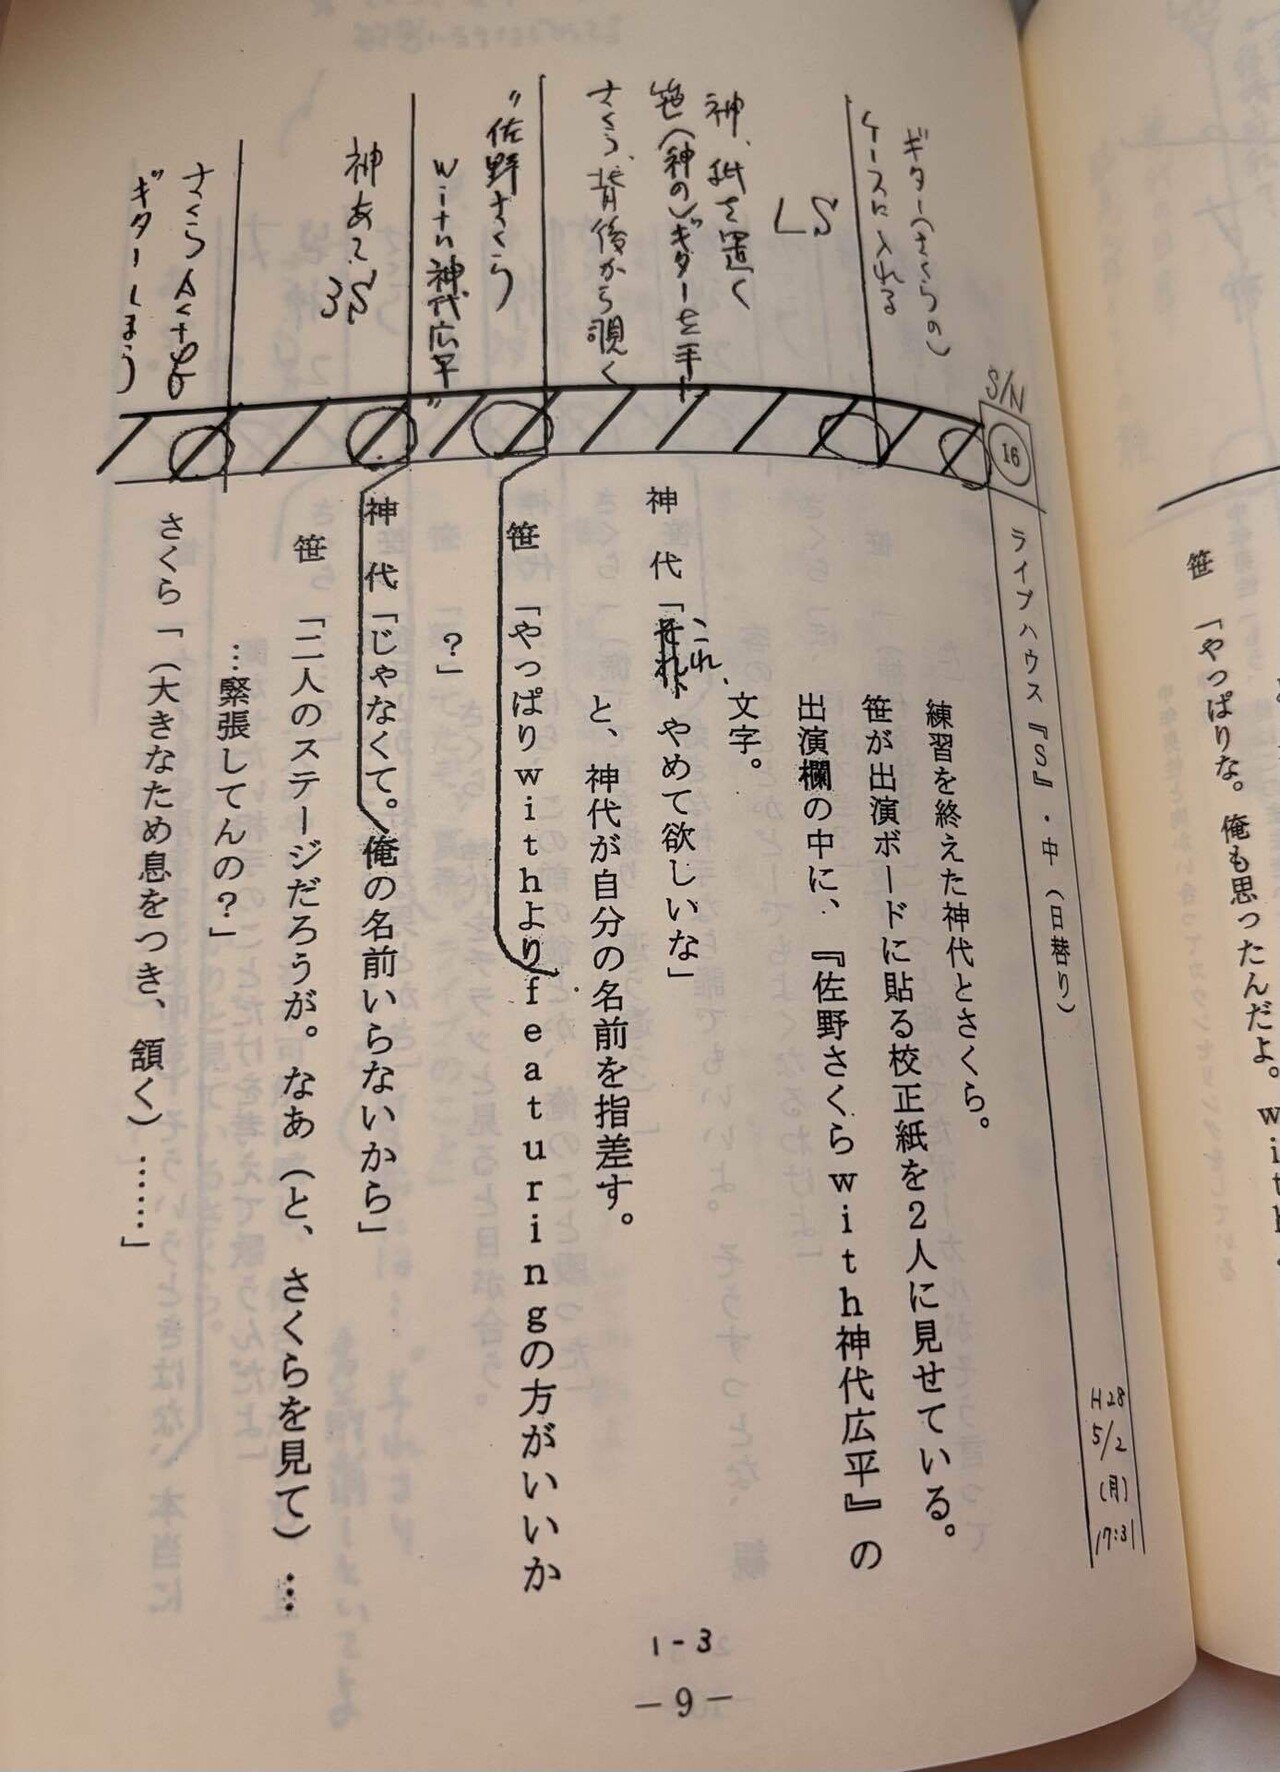 笹　「やっぱりな。俺も思ったんだよ。with.
S/N
16
ライブハウス『S』・中（日替り）
H28
5/2
(月)
17:31
練習を終えた神代とさくら。
笹が出演ボードに貼る校正紙を2人に見せている。
出演欄の中に、『佐野さくらwith神代広平』の
文字。
神　代「それ、やめて欲しいな」
これ、
と、神代が自分の名前を指差す。
笹　「やっぱりwithよりfeaturingの方がいいか
？」
神　代「じゃなくて。俺の名前いらないから」
笹　「二人のステージだろうが。なあ（と、さくらを見て）…
…緊張してんの？」
さくら「（大きなため息をつき、頷く）……」
ギター(さくらの)
ケースに入れる
LS
神、紙を置く
笹(神の)ギターを手に
さくら、背後から覗く
"佐野さくら
with神代広平"
神あて
3S
さくら
ギターしまう
1-3
－9－